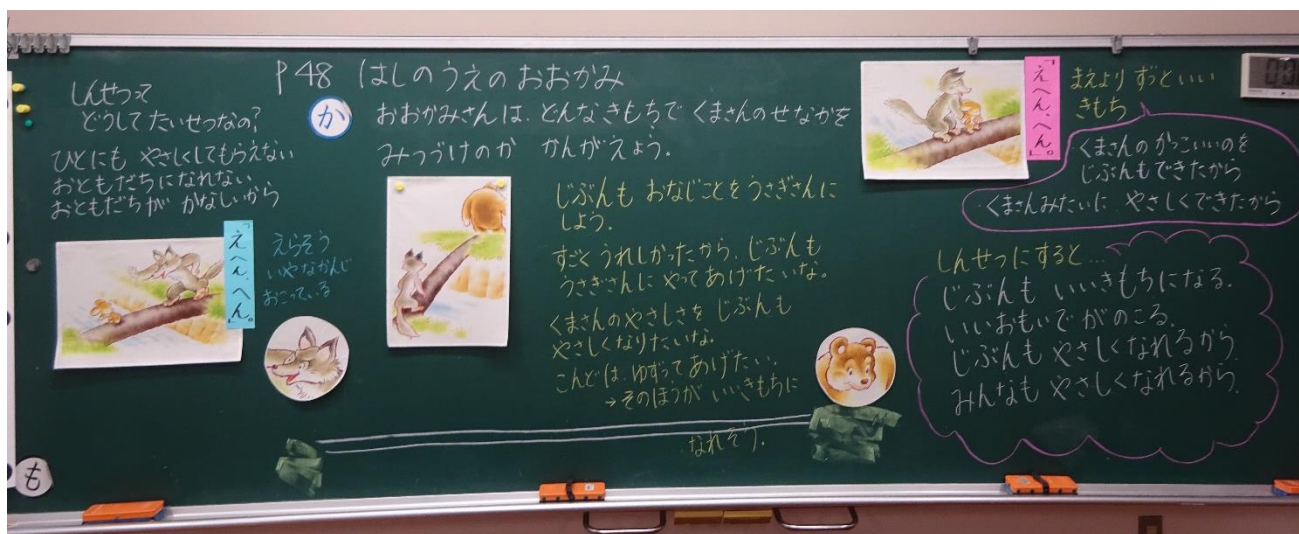 しんせつって
どうして たいせつなの?
ひとにも やさしくしてもらえない
おともだちになれない
おともだちが かなしいから
「えへん、へん」。
えらそう
いやなかんじ
おこっている
も
P48 はしのうえの おおかみ
か
おおかみさんは、どんなきもちで くまさんのせなかを
みつづけのか かんがえよう。
じぶんも おなじことを うさぎさんに
しよう。
すごく うれしかったから、じぶんも
うさぎさんに やってあげたいな。
くまさんの やさしさを じぶんも
やさしくなりたいな。
こんどは、ゆずって あげたい。
→そのほうが いいきもちに
なれそう。
「えへん、へん」。
まえより ずっといい
きもち
・くまさんの かっこいいのを
じぶんもできたから
・くまさんみたいに やさしくできたから
しんせつにすると…
じぶんも いいきもちになる。
いいおもいで がのこる。
じぶんも やさしくなれるから
みんなも やさしくなれるから.